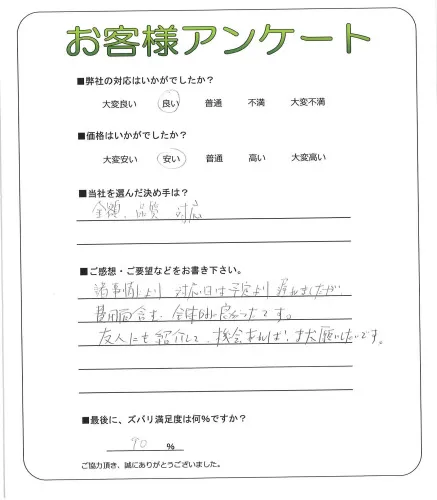 お客様アンケート
■弊社の対応はいかがでしたか？
大変良い 良い 普通 不満 大変不満
■価格はいかがでしたか？
大変安い 安い 普通 高い 大変高い
■当社を選んだ決め手は？
金額、品質 対応
■ご感想・ご要望などをお書き下さい。
諸事情により 対応日は予定より遅れましたが
費用面含む、全体的に良かったです。
友人にも紹介して、機会あれば、また願いしたいです。
■最後に、ズバリ満足度は何%ですか？
90 %
ご協力頂き、誠にありがとうございました。